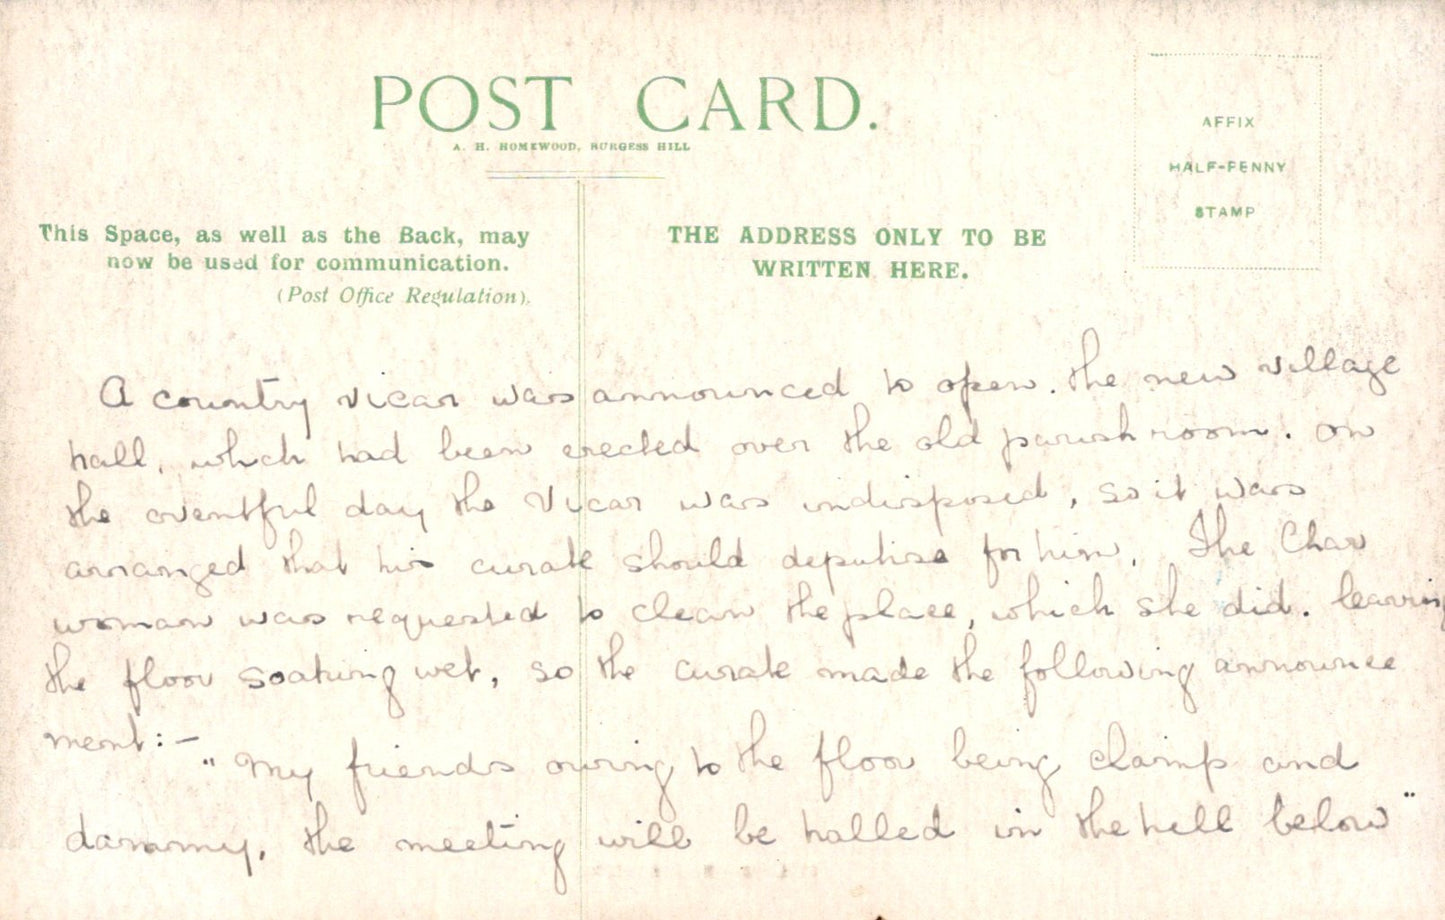 POST CARD.
A. H. HOMEWOOD, BURGESS HILL
AFFIX
HALF-PENNY
STAMP
This Space, as well as the Back, may
now be used for communication.
(Post Office Regulation).
THE ADDRESS ONLY TO BE
WRITTEN HERE.
A country vicar was announced to open. the new village
hall, which had been erected over the old parish room. on
the eventful day the Vicar was indisposed, so it was
arranged that his curate should deputise for him. The Char
woman was requested to clean the place, which she did. leaving
the floor soaking wet, so the curate made the following announce
ment:-
"My friends owing to the floor being clamp and
dammy, the meeting will be halled in the hell below"